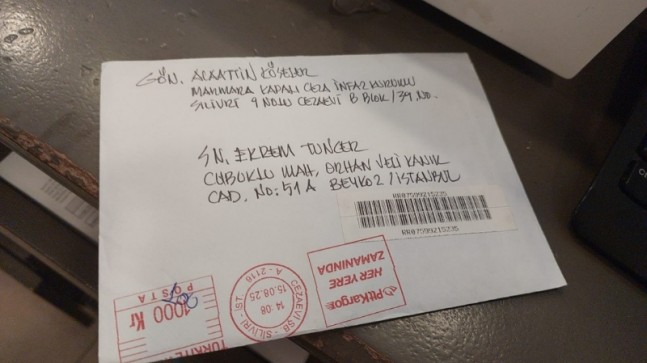 GÖN. ALAATTİN KÖSELER
MARMARA KAPALI CEZA İNFAZ KURUMU
SİLİVRİ 9 NOLU CEZAEVİ B BLOK / 39 NO.
SN. EKREM TUNCER
ÇUBUKLU MAH. ORHAN VELİ KANIK
CAD. NO: 51A BEYKOZ / İSTANBUL
RR07599215235
RR07599215235
PttKargo
HER YERE
ZAMANINDA
CEZAEVİ ŞB - SİLİVRİ - İST
14.08
15.08.25
A - 2116
POSTA
1000 Kr
TÜRKİYE